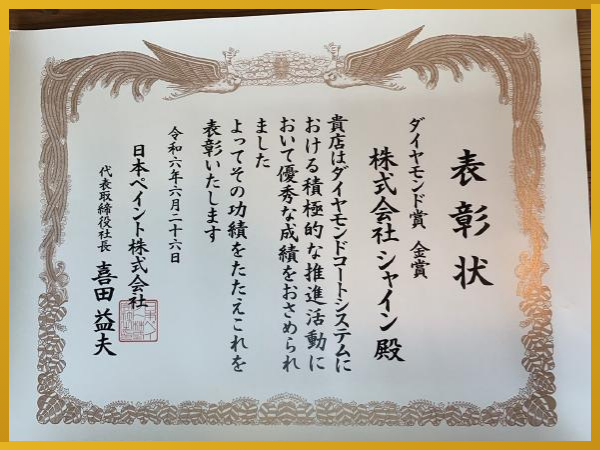 表彰状
ダイヤモンド賞 金賞
株式会社シャイン殿
貴店はダイヤモンドコートシステムに
おける積極的な推進活動に
おいて優秀な成績をおさめられ
ました
よってその功績をたたえこれを
表彰いたします
令和六年六月二十六日
日本ペイント株式会社
代表取締役社長 喜田益夫